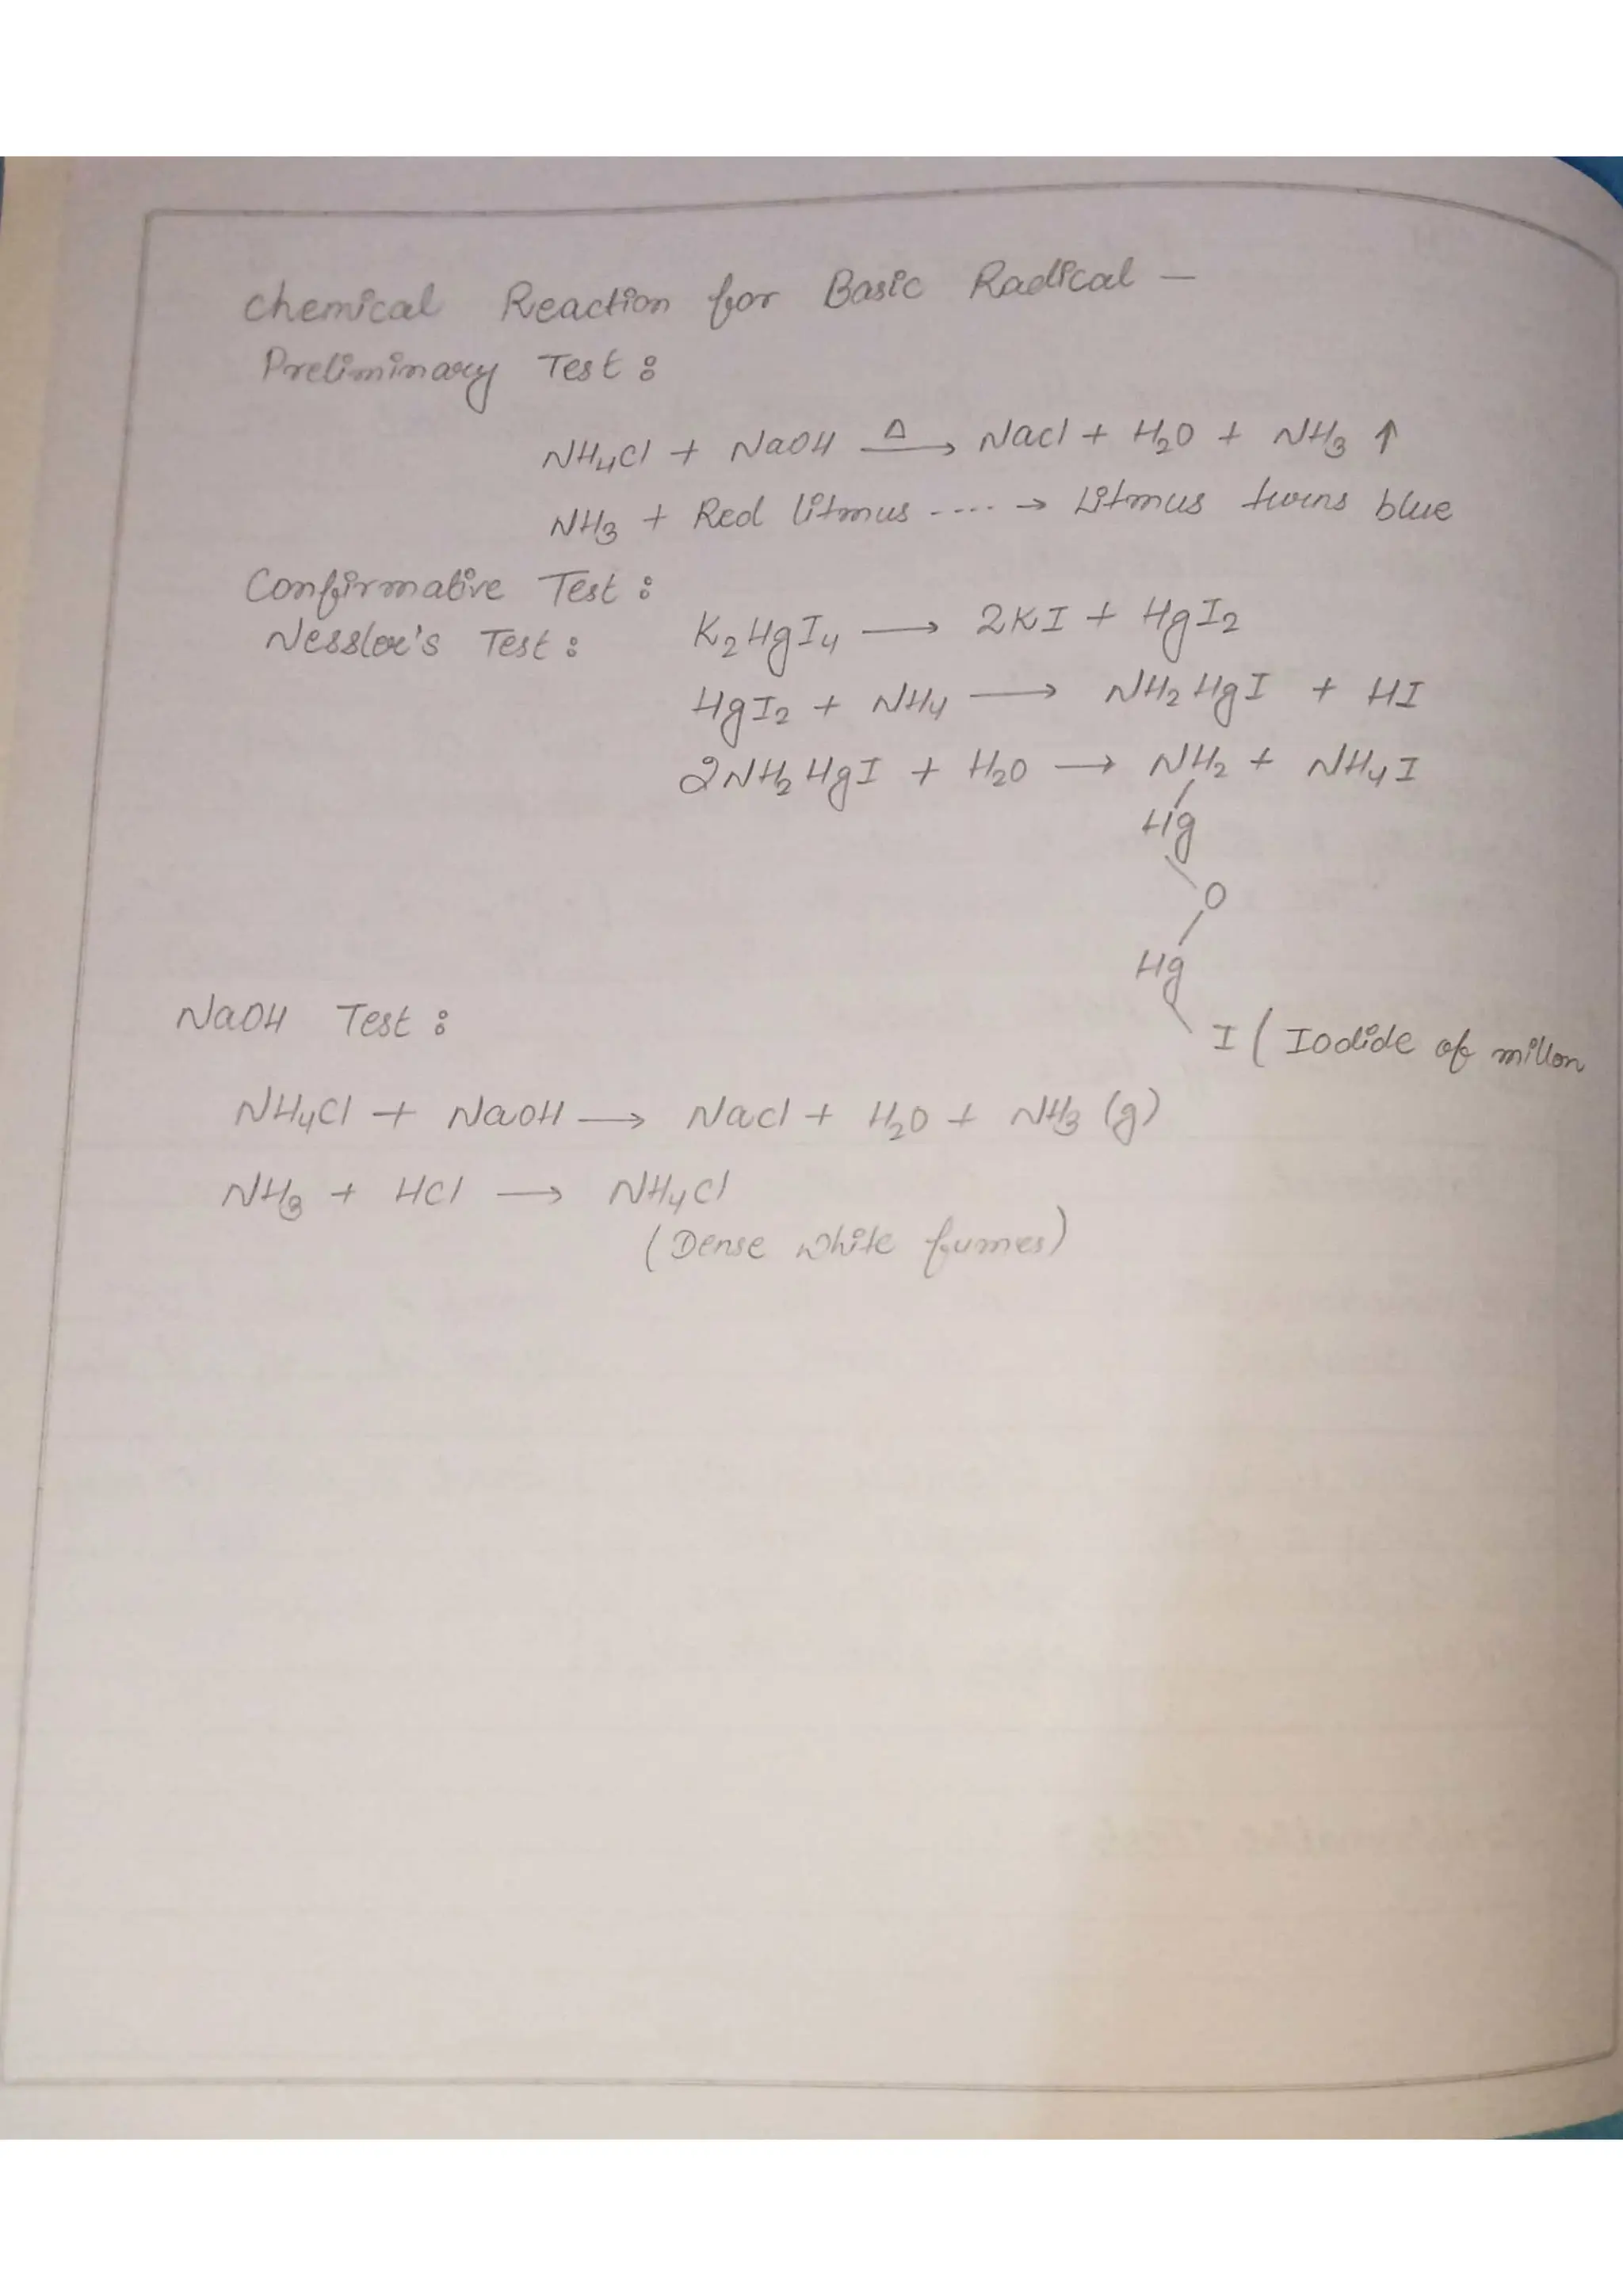 Chemical Reaction for Basic Radical —
Preliminary Test :
NH₄Cl + NaOH —Δ→ Nacl + H₂O + NH₃ ↑
NH₃ + Red litmus ----→ Litmus turns blue
Confirmative Test :
Nessler's Test : K₂HgI₄ ⟶ 2KI + HgI₂
HgI₂ + NH₄ ⟶ NH₂HgI + HI
2NH₂HgI + H₂O ⟶ NH₂ + NH₄I
/
Hg
\
O
/
Hg
\
I ( Iodide of millon
NaOH Test :
NH₄Cl + NaOH ⟶ Nacl + H₂O + NH₃ (g)
NH₃ + HCl ⟶ NH₄Cl
(Dense white fumes)